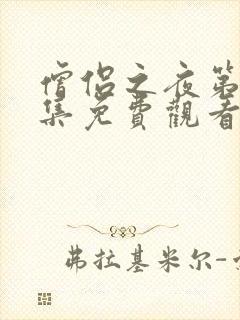 僧侶之夜第
集免費觀看
弗拉基米尔-